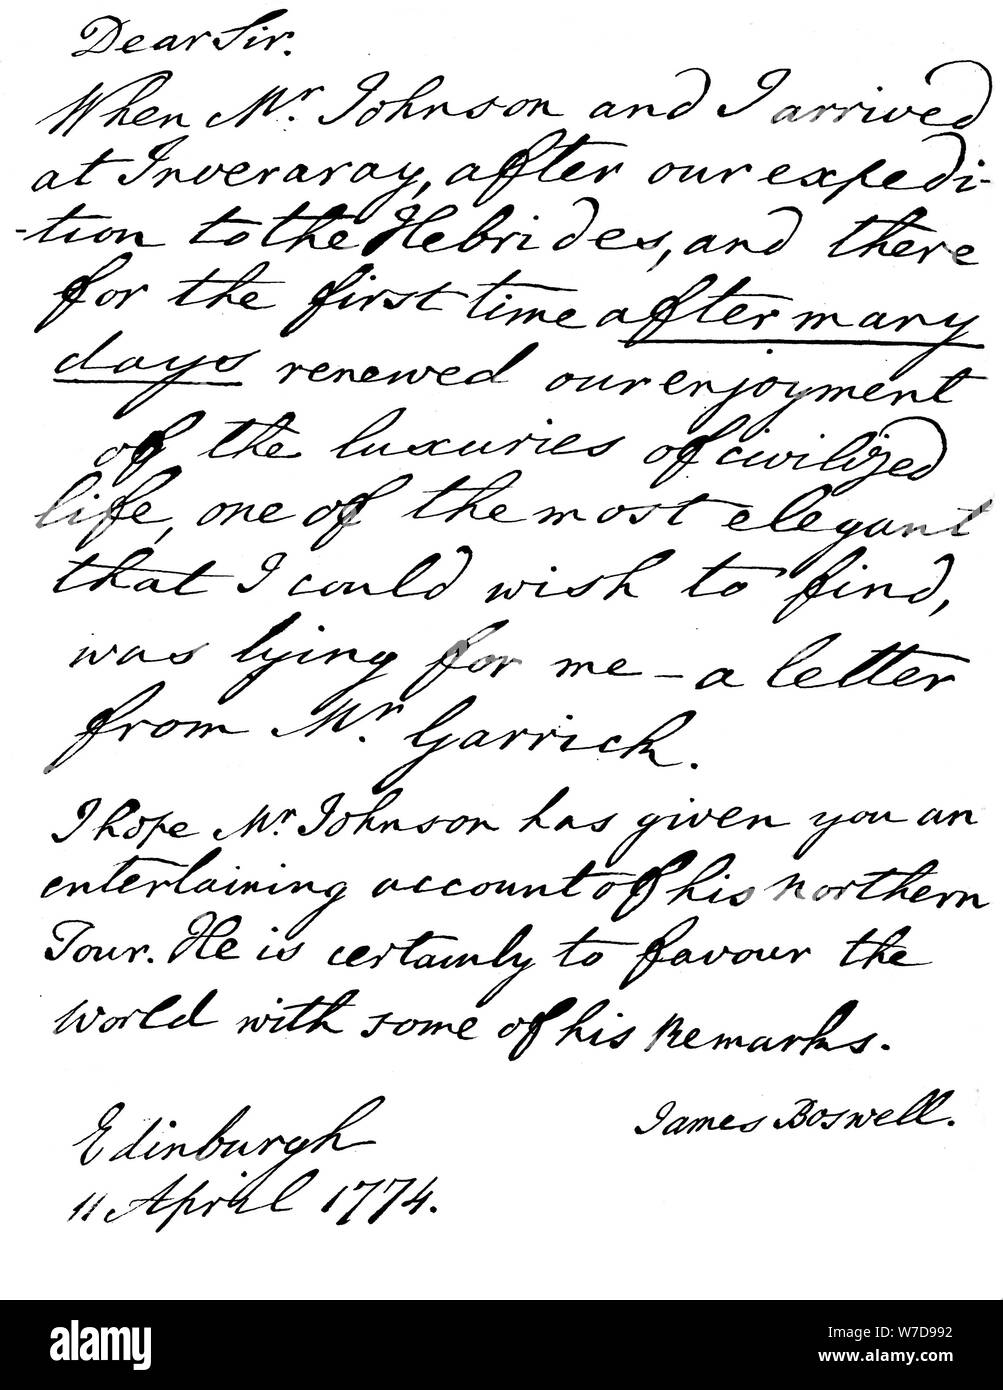 Dear Sir.
When Mr. Johnson and I arrived
at Inveraray, after our expedi-
-tion to the Hebrides, and there
for the first time after many
days renewed our enjoyment
of the luxuries of civilized
life, one of the most elegant
that I could wish to find,
was lying for me – a letter
from Mr. Garrick.
I hope Mr. Johnson has given you an
entertaining account of his Northern
Tour. He is certainly to favour the
World with some of his Remarks.
James Boswell.
Edinburgh
11 April 1774.
alamy
Image ID: W7D992
www.alamy.com